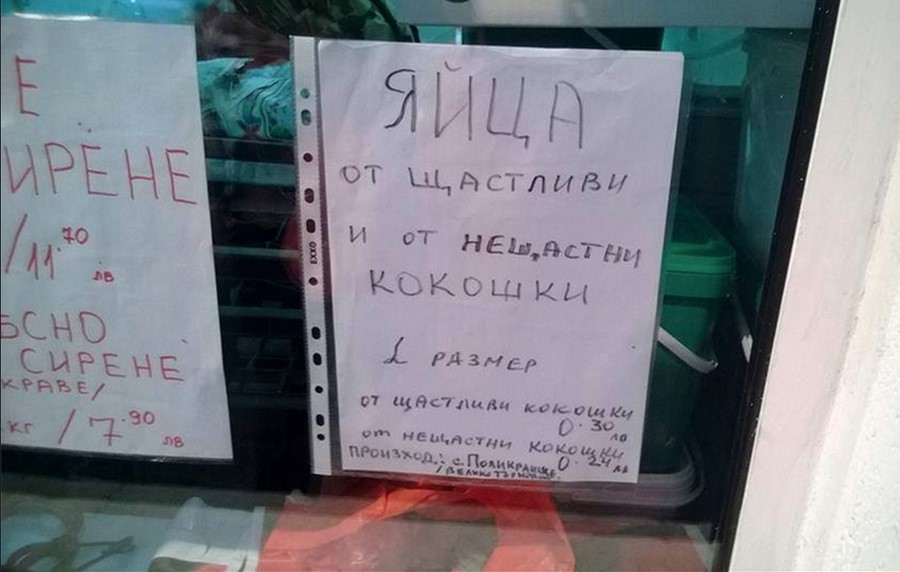 Е
ИРЕНЕ
/11.70 лв
БСНО
СИРЕНЕ
КРАВЕ/
кг /7.90 лв
ЯЙЦА
ОТ ЩАСТЛИВИ
И ОТ НЕЩАСТНИ
КОКОШКИ
L РАЗМЕР
ОТ ЩАСТЛИВИ КОКОШКИ
0.30 лв
ОТ НЕЩАСТНИ КОКОШКИ
0.24 лв
ПРОИЗХОД: с. Поликраище
/ВЕЛИКО ТЪРНОВО
EXXO